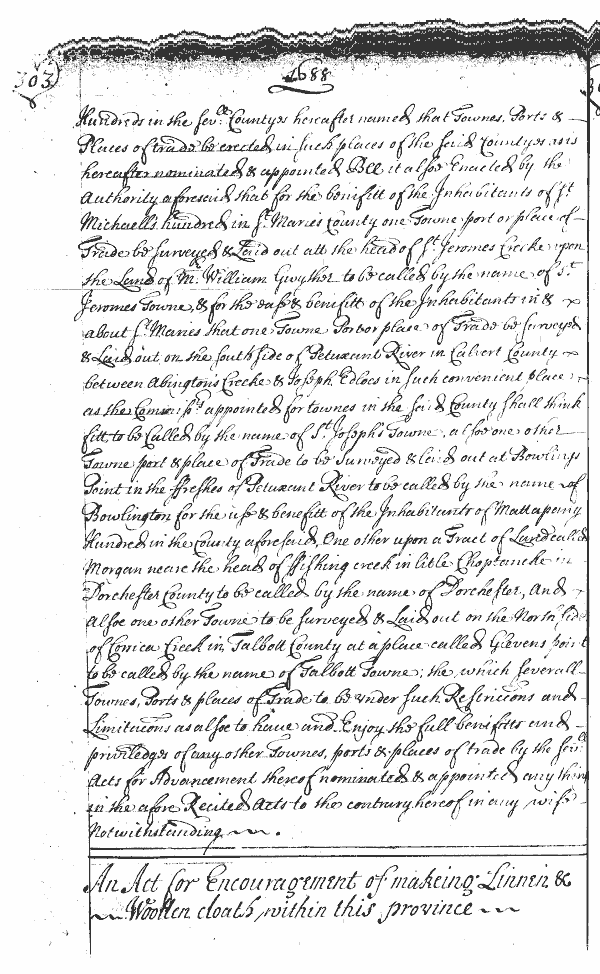 303
1688
Hundreds in the sev.ll Countyes hereafter named that Townes, Ports &
Places of trade be erected in such places of the said Countyes as is
hereafter nominated & appointed Bee it alsoe Enacted by the
Authority aforesaid that for the benifitt of the Inhabitants of St
Michaells hundred in St Maries County one Towne port or place of
Trade be surveyed & Laid out att the head of St Jeromes Creeke upon
the Land of Mr William Gwyther to be called by the name of St
Jeromes Towne, & for the ease & benifitt of the Inhabitants in &
about St Maries that one Towne Port or place of Trade be Surveyed
& Laid out on the South side of Petuxant River in Calvert County
between Abingtons Creeke & Joseph Edlocs in such convenient place
as the Comissrs appointed for townes in the said County shall think
fitt to be Called by the name of St Josephs Towne, alsoe one other
Towne port & place of Trade to be Surveyed & laid out at Bowlings
Point in the ffreshes of Petuxant River to be called by the name of
Bowlington for the use & benefitt of the Inhabitants of Mattapany
Hundred in the County aforesaid, One other upon a Tract of Land called
Morgan neare the head of ffishing creek in litle Choptancke in
Dorchester County to be called by the name of Dorchester, And
Alsoe one other Towne to be surveyed & Laid out on the North side
of Corsica Creek in Talbott County at a place called Glevens point
to be called by the name of Talbott Towne; the which severall
Townes, Ports & places of Trade to be under such Restricions and
Limitacions as alsoe to have and Enjoy the full benefitts and
priviledges of any other Townes, ports & places of trade by the said
Acts for Advancement thereof nominated & appointed any thing
in the afore Recited Acts to the contrary hereof in any wise
Notwithstanding
An Act for Encouragement of makeing Linnen &
Woollen cloath within this province